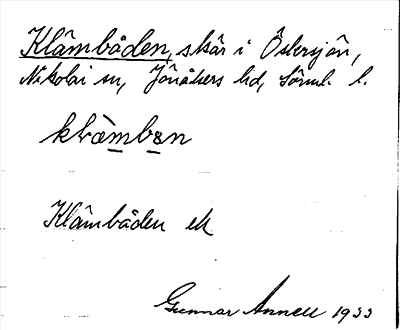 Klâmbåden, skär i Östersjön,
Nikolai sn, Jönåkers hd, Sörml. l.
klàmbən
Klâmbåden ek
Gunnar Annell 1933